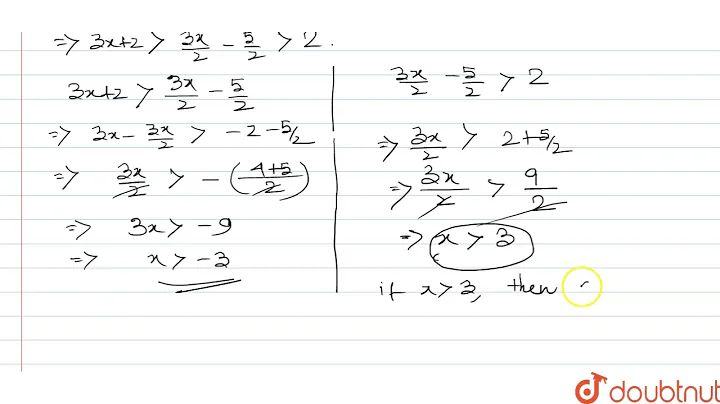 => 3x+2 > 3x/2 - 5/2 > 2.
3x+2 > 3x/2 - 5/2
=> 3x - 3x/2 > -2 - 5/2
=> 3x/2 > -(4+5/2)
=> 3x > -9
=> x > -3
3x/2 - 5/2 > 2
=> 3x/2 > 2+5/2
=> 3x/2 > 9/2
=> x > 3
if x > 3, then
doubtnut